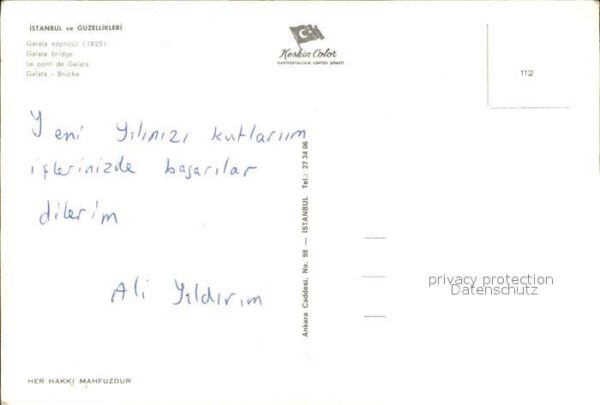 İSTANBUL ve GÜZELLİKLERİ
Galata köprüsü (1825)
Galata bridge
Le pont de Galata
Galata - Brücke
Keskin Color
KARTPOSTALCILIK LİMİTED ŞİRKETİ
112
Yeni Yılınızı kutlarıım
işlerinizde başarılar
dilerim
Ali Yıldırım
Ankara Caddesi, No. 98 — İSTANBUL Tel.: 27 34 06
privacy protection
Datenschutz
HER HAKKI MAHFUZDUR